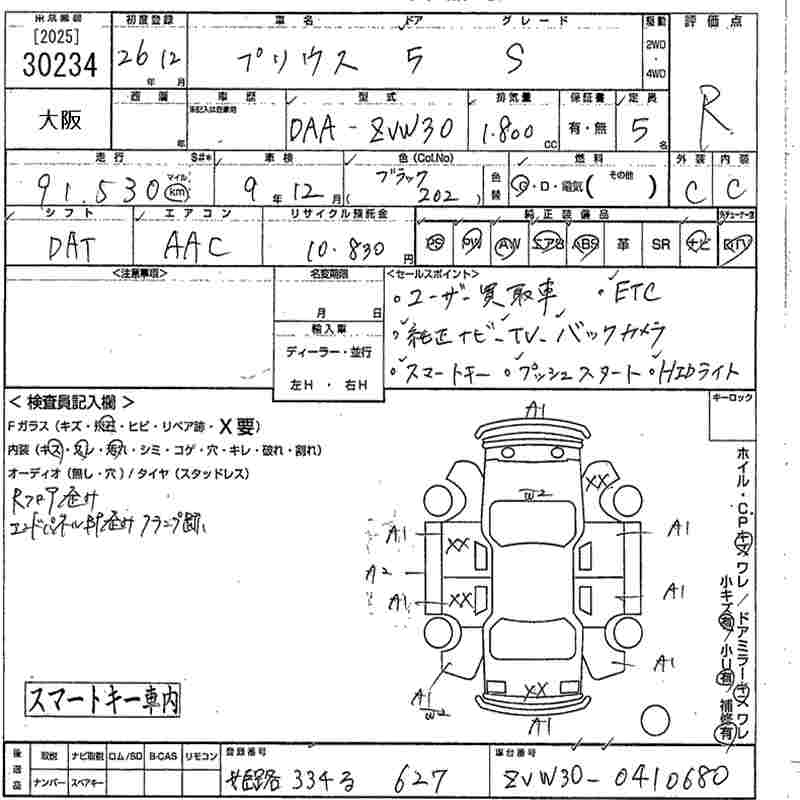 [2025]
30234
大阪
初度登録 車名 ドア グレード 駆動 評価点
26年 12月 プリウス 5 S 2WD・4WD R
車歴 型式 排気量 保証書 定員
年 DAA-ZVW30 1.800 CC 有・無 5名
走行 車検 色(Col.No) 色替 燃料 外装 内装
91.530 マイル km 9年 12月 ブラック (202) G・D・電気( その他 ) C C
シフト エアコン リサイクル預託金 純正装備品
DAT AAC 10.830円 PS PW AW エアB ABS 革 SR ナビ TV
<注意事項> 名変期限 <セールスポイント>
月 日
輸入車
ディーラー・並行
左H・右H
・ユーザー買取車 ・ETC
・純正ナビ-TV-バックカメラ
・スマートキー ・プッシュスタート・HIDライト
キーロック
<検査員記入欄>
Fガラス(キズ・飛石・ヒビ・リペア跡・X要)
内装(キズ・汚レ・スレ・シミ・コゲ・穴・キレ・破れ・割れ)
オーディオ(無し・穴)/タイヤ(スタッドレス)
Rフロア歪み
エンドパネル部歪み クランプ跡
A1
W2 XX
A1 XX A1
A2
A1 XX A1
A1
A1 W2 XX
A1
ホイル・CPキズ ワレ/ドアミラーキズ ワレ
小キズ有/小U有 補修有
スマートキー車内
後送品 取説 ナビ取説 ロム/SD B-CAS リモコン 登録番号 車台番号
ナンバー スペアキー 姫路 334 る 627 ZVW30-0410680